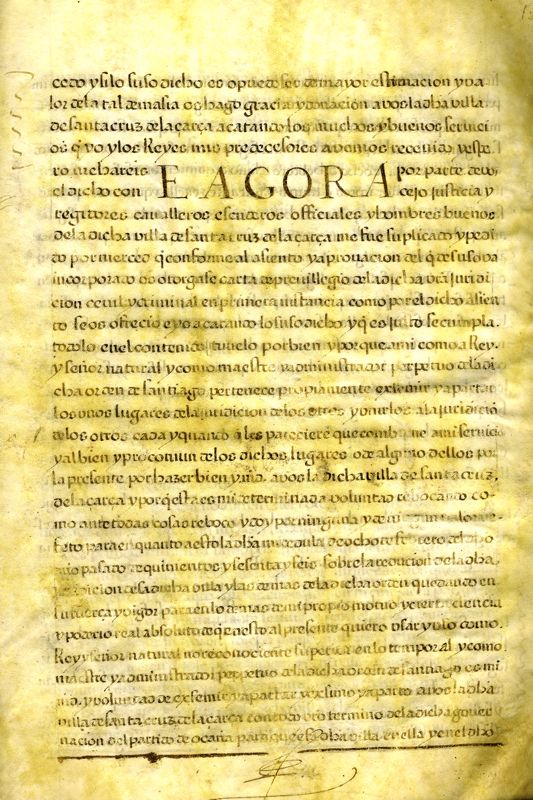 cedo y si lo suso dicho es o puede ser de mayor estimacion y va
lor de la tal demasia os hago gracia y donacion a vos la dha villa
de santa cruz de la çarça acatando los muchos y buenos servici
os q̃ vos y los Reyes mis predecesores avemos recevido y espe
ro me hareis E AGORA por parte de vos
el dicho con cejo justicia y
regidores cavalleros escuderos officiales y hombres buenos
de la dicha villa de santa cruz de la çarça me fue suplicado y pedi
do por merced q̃ conforme al asiento y aprovacion del q̃ de suso va
incorporado os otorgase carta de previllegio de la dicha vr̃a juridi
cion cevil y criminal en primera instancia como por el dicho asien
to se os ofrecio e yo acatando lo suso dicho y q̃ es justo se cumpla
todo lo en el contenido tuvelo por bien y porque ami como a Rey
y señor natural y como maestre y administrador perpetuo de la di
cha orden de santiago pertenece propiamente exsemir y apartar
los unos lugares de la juridicion de los otros y unirlos a la juridició
de los otros cada y quando q̃ les pareciere que combiene ami servicio
y al bien y procomun de los dichos lugares o de alguno dellos por
la presente por hazer bien y md̃ a vos la dicha villa de santa cruz
de la çarça y porq̃ esta es mi determinada voluntad rebocando co-
mo ante todas cosas reboco y doy por ninguna y de ningun valor e-
feto para en quanto a esto la dha mi cedula de ocho de febrero del dho
año pasado de quinientos y sesenta y seis sobre la reducion de la dha
juridicion desa dicha villa y las demas de la dicha orden quedando en
su fuerça y vigor para en lo demas de mi propio motuo y cierta ciencia
y poderio real absoluto de q̃ en esto al presente quiero usar y uso como
Rey y señor natural no reconociente superior en lo temporal y como
maestre y administrador perpetuo de la dicha orden de santiago es mi
md̃ y voluntad de exsemir y apartar y exsimo y aparto a vos la dha
villa de santa cruz de la çarça con todo vr̃o termino de la dicha gover
nacion del partido de ocaña para que en essa dha villa en ella y en el dho